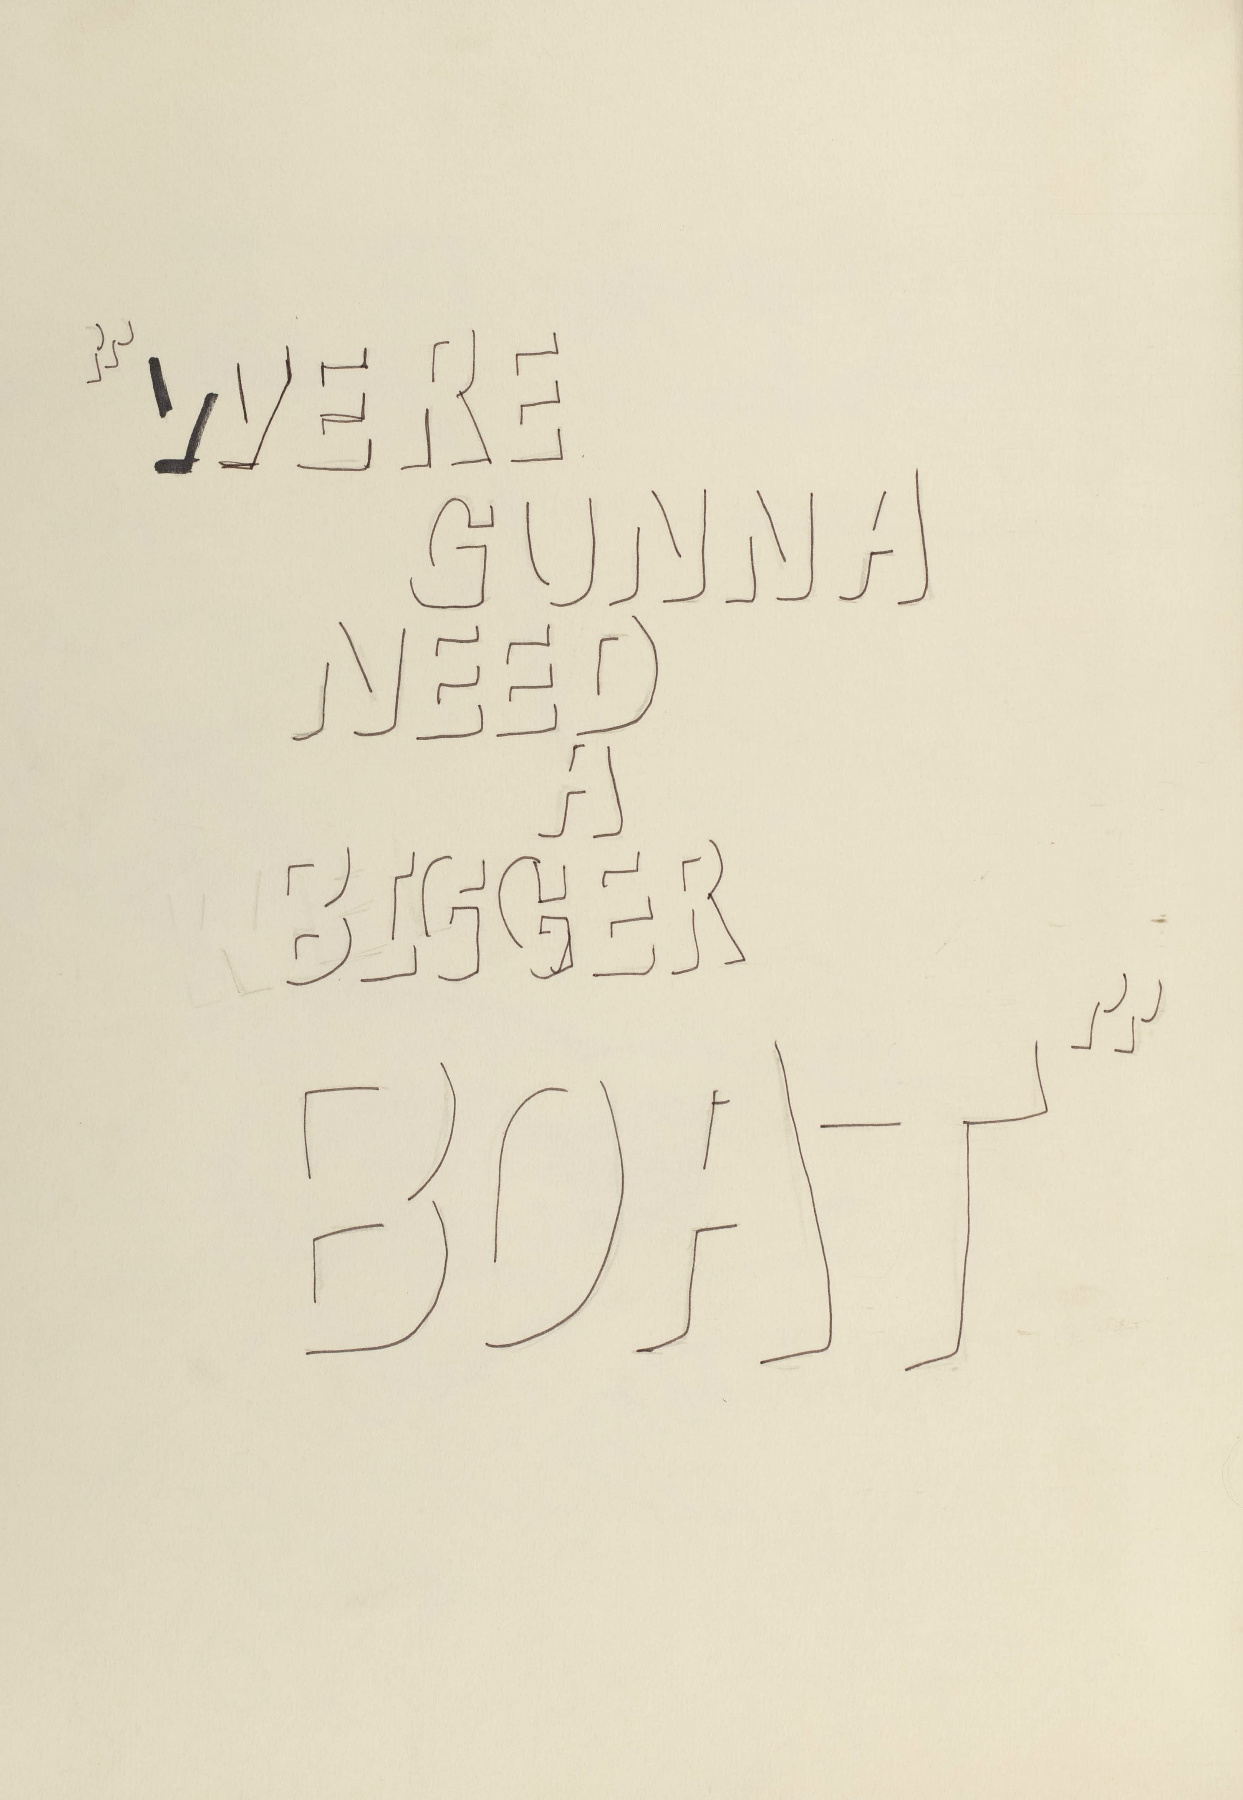 "WERE
GUNNA
NEED
A
BIGGER
BOAT"